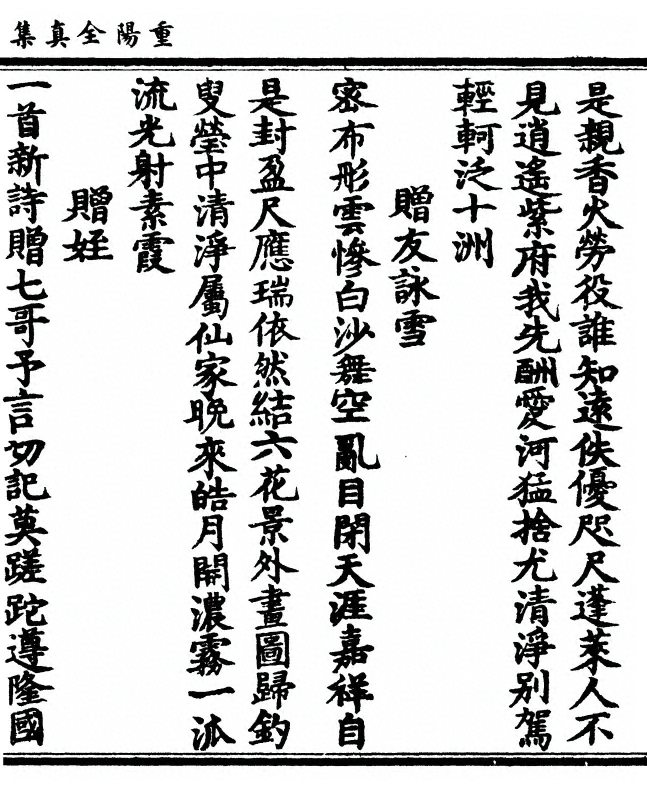 重陽全真集
是親香火勞役誰知遠佚優咫尺蓬萊人不
見逍遙紫府我先酬愛河猛捨尤清淨別駕
輕軻泛十洲
贈友詠雪
密布彤雲慘白沙舞空亂目閉天涯嘉祥自
是封盈尺應瑞依然結六花景外畫圖歸釣
叟瑩中清淨屬仙家晚來皓月開濃霧一派
流光射素霞
贈姪
一首新詩贈七哥予言切記莫蹉跎遵隆國